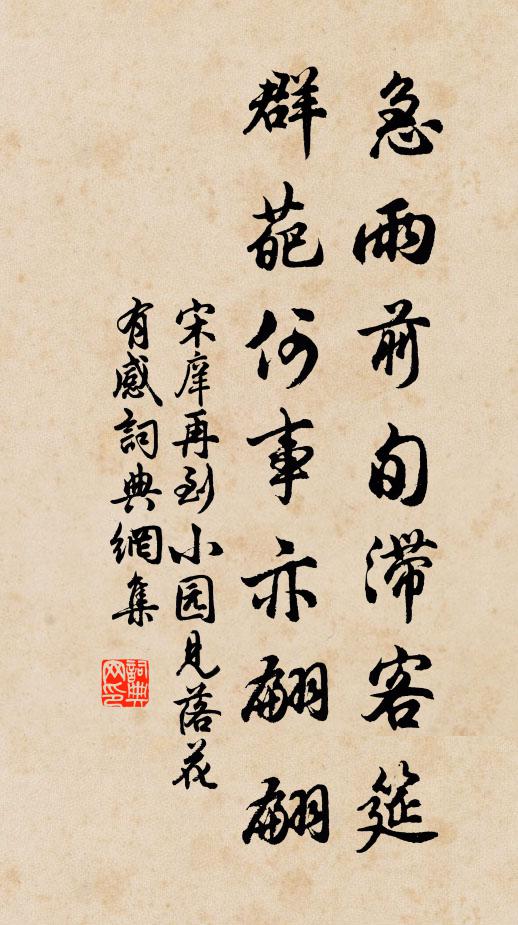 急雨前旬滞客筵
群葩何事亦翩翩
宋庠再到小园见落花
有感詞典網集
詞典
网印